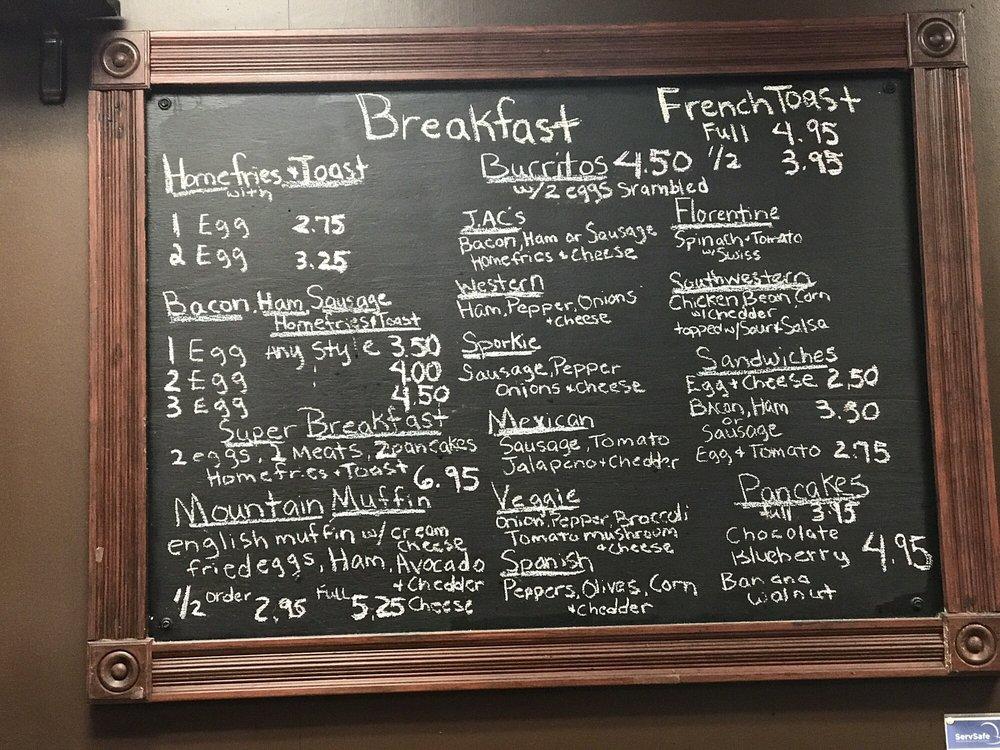 Breakfast
Homefries + Toast
with
1 Egg 2.75
2 Egg 3.25
Bacon, Ham, Sausage
Homefries + Toast
1 Egg Any Style 3.50
2 Egg 4.00
3 Egg 4.50
Super Breakfast
2 eggs, 2 Meats, 2 pancakes
Homefries + Toast 6.95
Mountain Muffin
english muffin w/ cream
cheese
fried eggs, Ham, Avocado
+ Chedder
1/2 order 2.95 Full 5.25 Cheese
Burritos 4.50
w/2 eggs Srambled
J.AC's
Bacon, Ham or Sausage
Homefries + Cheese
Western
Ham, Pepper, Onions
+ cheese
Sporkie
Sausage, Pepper
Onions + Cheese
Mexican
Sausage, Tomato
Jalapeno + Chedder
Veggie
Onion, Pepper, Broccoli
Tomato mushroom
+ cheese
Spanish
Peppers, Olives, Corn
+ chedder
French Toast
Full 4.95
1/2 3.95
Florentine
Spinach + Tomato
w/ Swiss
Southwestern
Chicken, Bean, Corn
w/ Chedder
topped w/ Sour + Salsa
Sandwiches
Egg + Cheese 2.50
Bacon, Ham
or 3.50
Sausage
Egg + Tomato 2.75
Pancakes
full 3.95
Chocolate
Blueberry 4.95
Banana
walnut
ServSafe